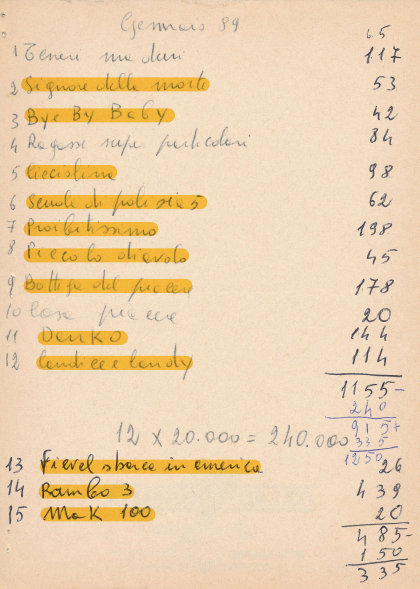 Gennaio 89
65
1 Teneri 117
2 Signore della morte 53
3 Bye By Baby 42
4 Ragazze super particolari 84
5 Cicciolina 98
6 Scuola di polizia 5 62
7 Proibitissimo 198
8 Piccolo diavolo 45
9 Bottega del piacere 178
10 Cose 20
11 Danko 144
12 Candice e Candy 114
1155-
240
915+
12 X 20.000 = 240.000 335
1250
13 Fievel sbarca in america 26
14 Rambo 3 439
15 Mak 100 20
485-
150
335